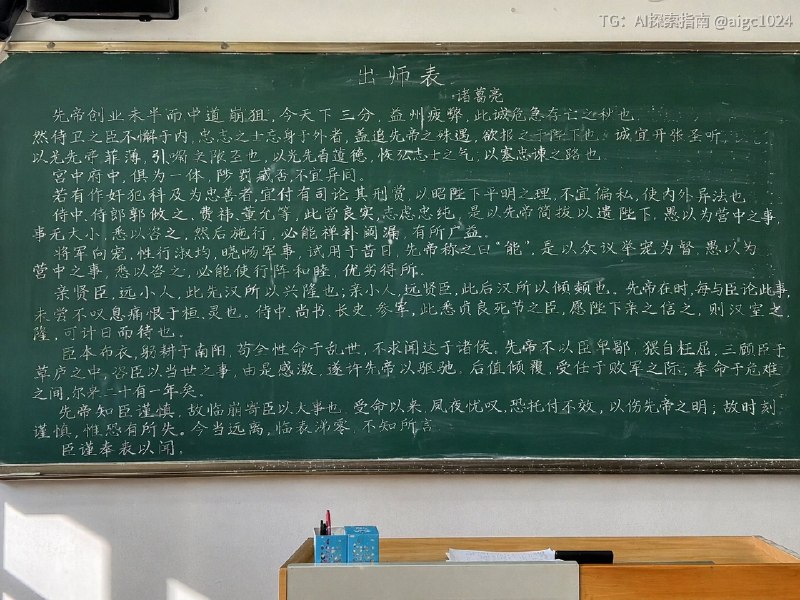 TG: AI探索指南 @aigc1024
出师表
·诸葛亮
先帝创业未半而中道崩狙,今天下三分,益州疲弊,此诚危急存亡之秋也.
然侍卫之臣不懈于内,忠志之士忘身于外者,盖追先帝之殊遇,欲报之于陛下也. 诚宜开张圣听,
以光先帝 菲薄,引喻失 也,以光先 德,恢弘志士之气,以塞忠谏之路也
宫中府中,俱为一体,陟罚臧否,不宜异同。
若有作奸犯科及为忠善者,宜付有司论其刑赏,以昭陛下平明之理,不宜偏私,使内外异法也
侍中,侍郎郭攸之,费祎,董允等,此皆良实,志虑忠纯,是以先帝简拔以遗陛下,愚以为营中之事,
事无大小,悉以咨之,然后施行,必能裨补阙漏,有所广益。
将军向宠,性行淑均,晓畅军事,试用于昔日,先帝称之曰“能”,是以众议举宠为督,愚以为
营中之事,悉以咨之,必能使行阵和睦,优劣得所。
亲贤臣,远小人,此先汉所以兴隆也;亲小人,远贤臣,此后汉所以倾颓也。先帝在时,每与臣论此事,
未尝不叹息痛恨于桓、灵也。侍中,尚书,长史,参军,此悉贞良死节之臣,愿陛下亲之信之,则汉室之
隆,可计日而待也。
臣本布衣,躬耕于南阳,苟全性命于乱世,不求闻达于诸侯。先帝不以臣卑鄙,猥自枉屈,三顾臣于
草庐之中,咨臣以当世之事,由是感激,遂许先帝以驱驰。后值倾覆,受任于败军之际,奉命于危难
之间,尔来二十有一年矣。
先帝知臣谨慎,故临崩寄臣以大事也.受命以来,夙夜忧叹,恐托付不效,以伤先帝之明;故时刻
谨慎,惟恐有所失。今当远离,临表涕零,不知所言
臣谨奉表以闻。